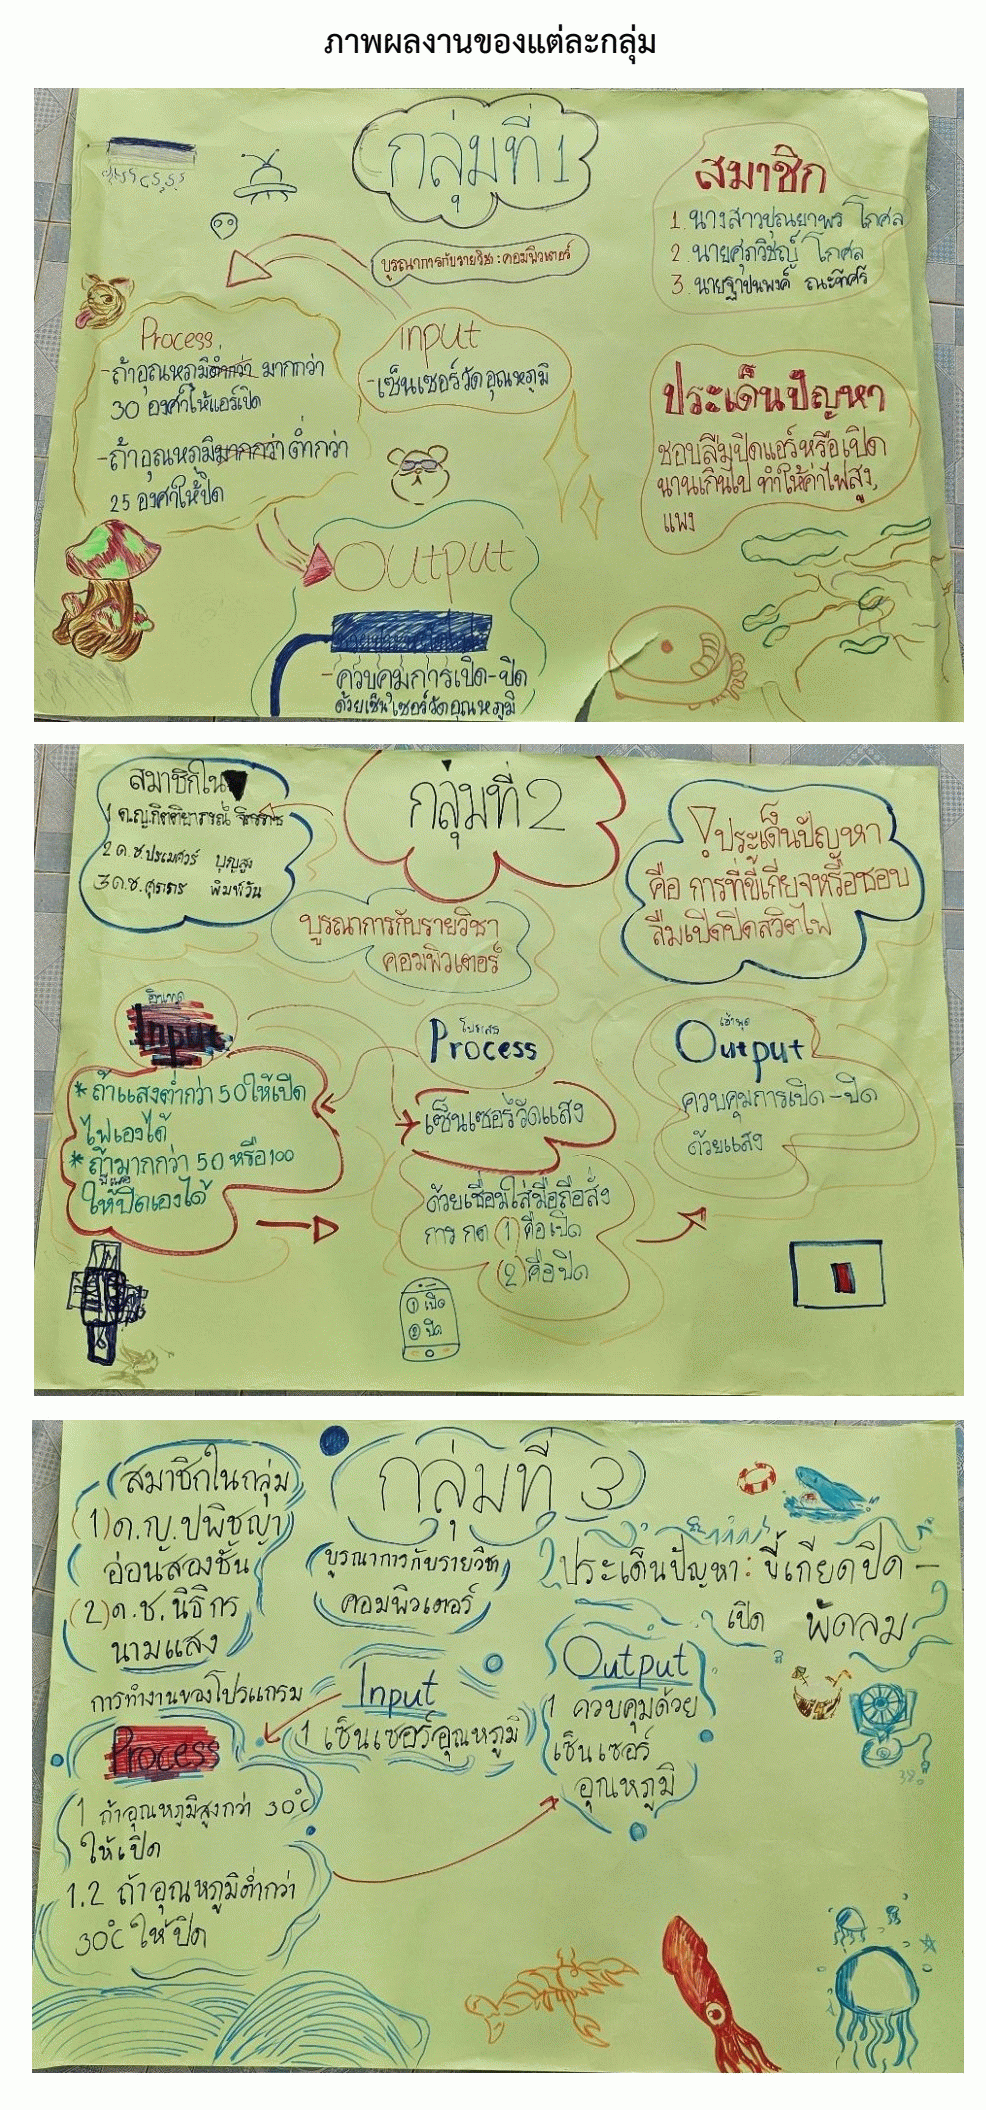 ภาพผลงานของแต่ละกลุ่ม
กลุ่มที่ 1
สมาชิก
1. นางสาวปุณยาพร โกศล
2. นายศุภวิชญ์ โกศล
3. นายฐาปนพงค์
บูรณาการกับรายวิชา : คอมพิวเตอร์
Process
-ถ้าอุณหภูมิต่ำกว่า มากกว่า
30 องศาให้แอร์เปิด
-ถ้าอุณหภูมิมากกว่า ต่ำกว่า
25 องศาให้ปิด
input
-เซ็นเซอร์วัดอุณหภูมิ
ประเด็นปัญหา
ชอบลืมปิดแอร์หรือเปิด
นานเกินไป ทำให้ค่าไฟสูง,
แพง
Output
-ควบคุมการเปิด-ปิด
ด้วยเซ็นเซอร์วัดอุณหภูมิ
สมาชิกใน
1 ด.ญ.กิตติยาภรณ์
2 ด.ช.ปรเมศวร์ บุญสูง
3 ด.ช. พิมพ์วัน
กลุ่มที่ 2
! ประเด็นปัญหา
คือ การที่ขี้เกียจหรือชอบ
ลืมเปิดปิดสวิตไฟ
บูรณาการกับรายวิชา
คอมพิวเตอร์
อินพุด
Input
*ถ้าแสงต่ำกว่า 50 ให้เปิด
ไฟเองได้
*ถ้ามากกว่า 50 หรือ 100
ให้ปิดเองได้
โปรเสร
Process
เซ็นเซอร์วัดแสง
ด้วยเชื่อมใส่มือถือสั่ง
การ กด (1) คือเปิด
(2) คือปิด
① เปิด
② ปิด
เอ้าพุด
Output
ควบคุมการเปิด-ปิด
ด้วยแสง
สมาชิกในกลุ่ม
(1) ด.ญ.ปพิชญา
อ่อนสองชั้น
(2) ด.ช.นิธิกร
นามแสง
กลุ่มที่ 3
บูรณาการกับรายวิชา
คอมพิวเตอร์
ประเด็นปัญหา : ขี้เกียดปิด -
เปิด พัดลม
การทำงานของโปรแกรม
Process
1 ถ้าอุณหภูมิสูงกว่า 30°c
ให้เปิด
1.2 ถ้าอุณหภูมิต่ำกว่า
30°C ให้ปิด
Input
1 เซ็นเซอร์อุณหภูมิ
Output
1 ควบคุมด้วย
เซ็นเซอร์
อุณหภูมิ